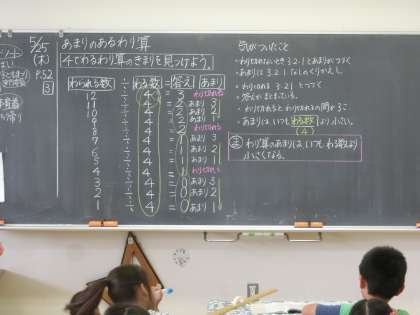 5/25
(木)
P.52
3
あまりのあるわり算
4でわるわり算のきまりを見つけよう。
わられる数 ÷ わる数 = 答え あまり
12 ÷ 4 = 3 わりきれる
11 ÷ 4 = 2 あまり 3
10 ÷ 4 = 2 あまり 2
9 ÷ 4 = 2 あまり 1
8 ÷ 4 = 2 わりきれる
7 ÷ 4 = 1 あまり 3
6 ÷ 4 = 1 あまり 2
5 ÷ 4 = 1 あまり 1
4 ÷ 4 = 1 わりきれる
3 ÷ 4 = 0 あまり 3
2 ÷ 4 = 0 あまり 2
1 ÷ 4 = 0 あまり 1
気がついたこと
・わりきれないとき 3.2.1 とあまりがつづく
・あまりは 3.2.1 なしのくりかえし
・わりきれる 3.2.1 とつづく
・わりきれるとわりきれるの間が3こ
・あまりは いつも わる数 より 小さい。
(4)
わり算のあまりは いつも わる数より
小さくなる。